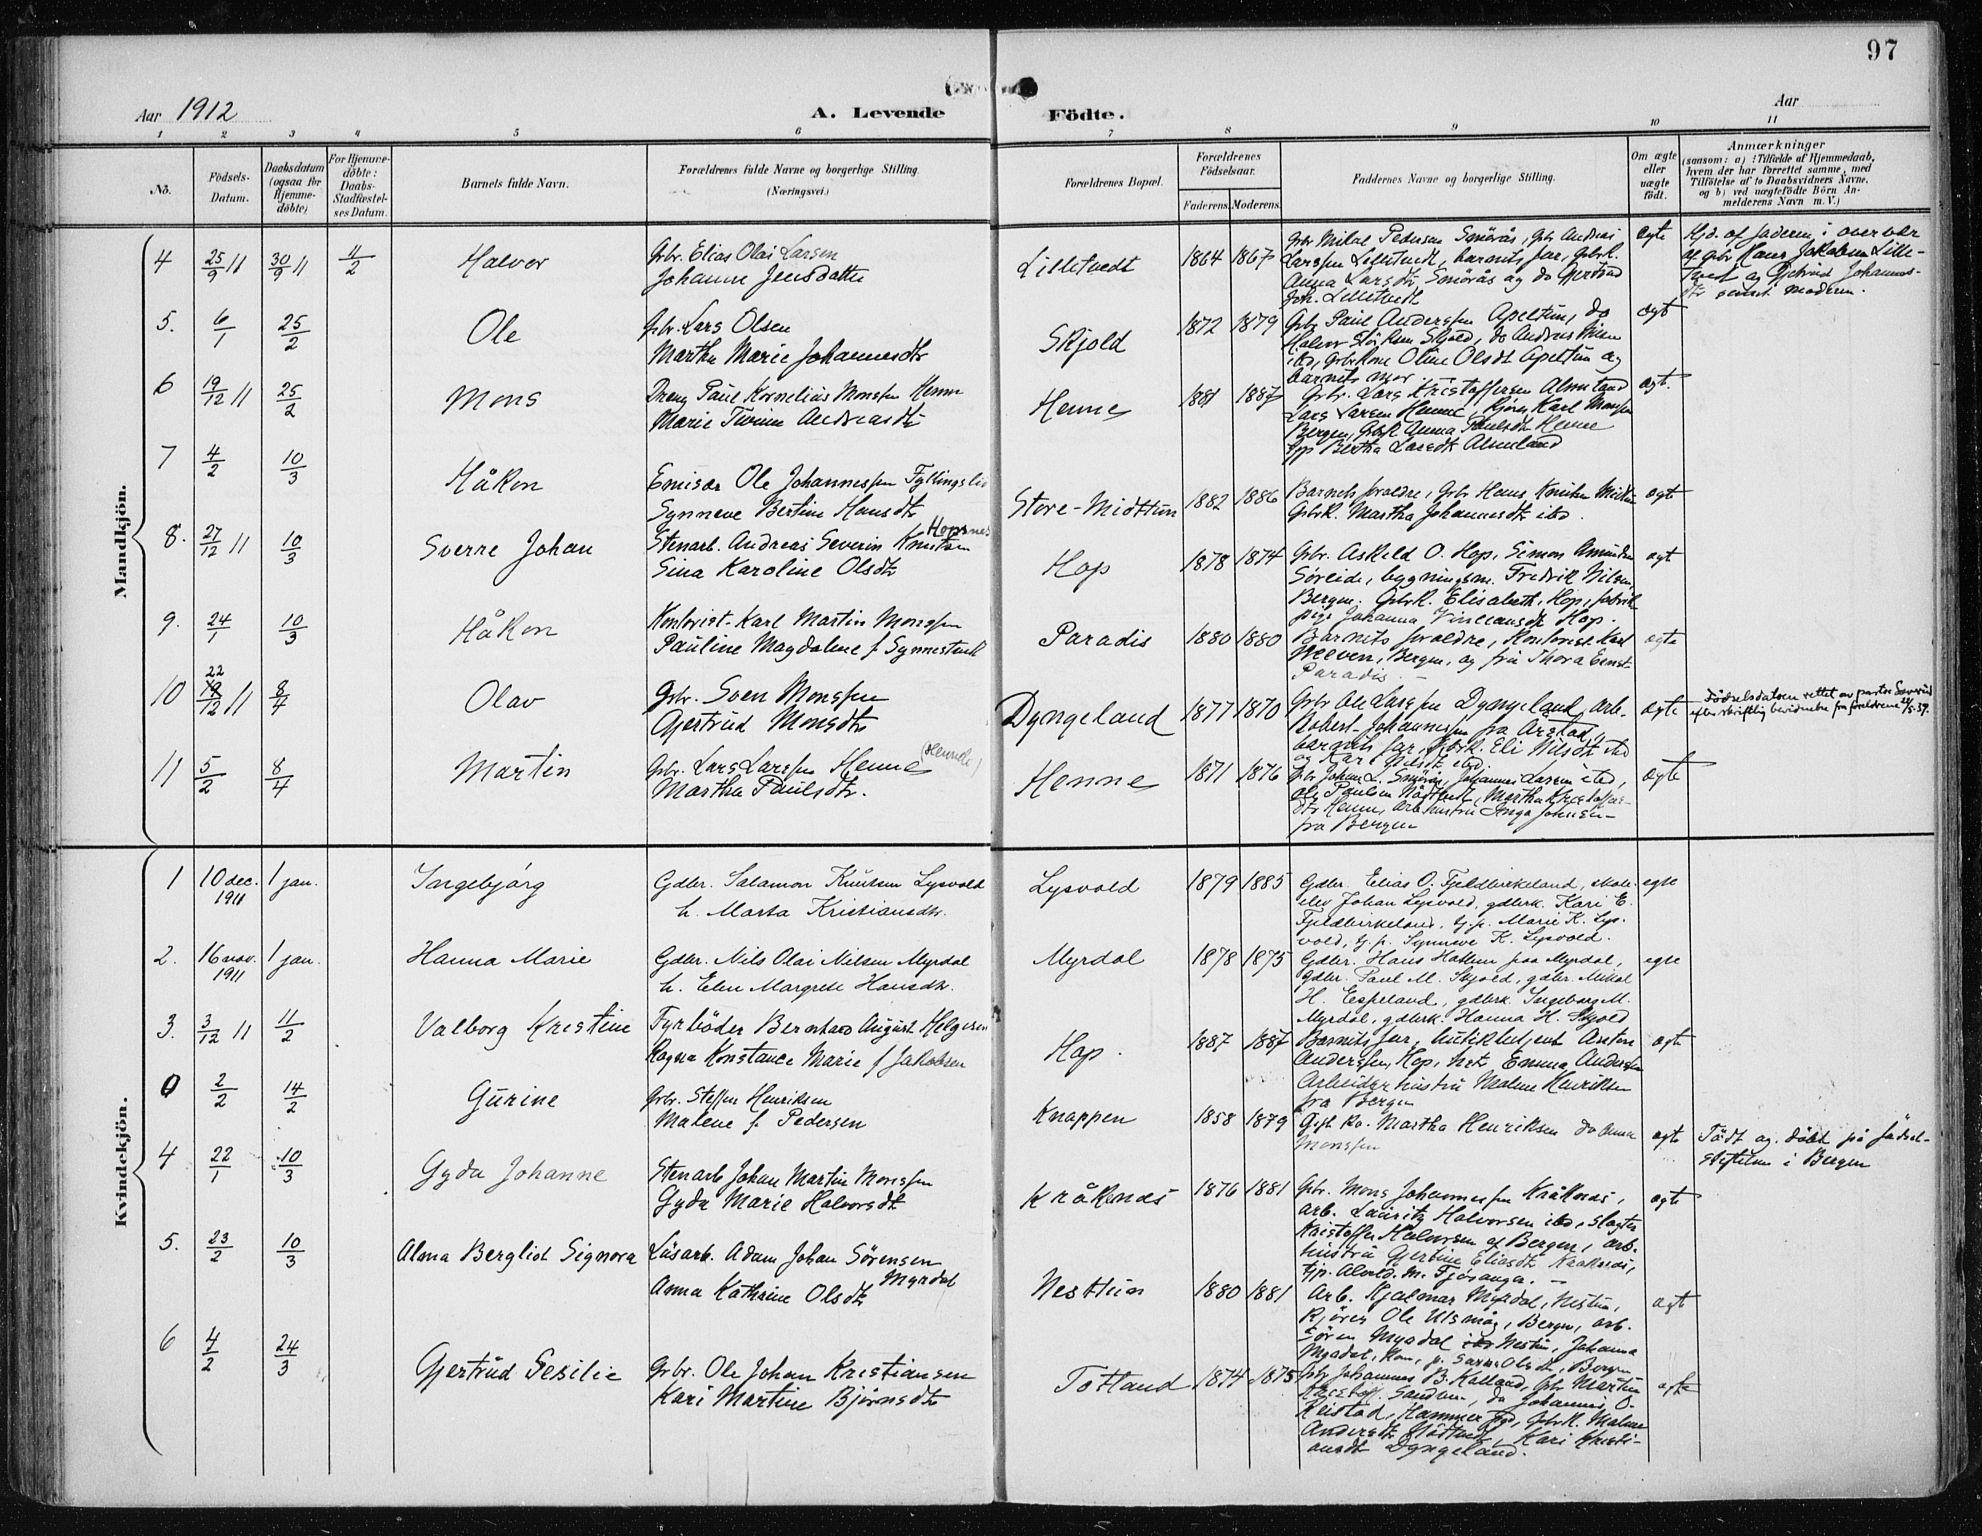 97
Aar 1912
A. Levende Födte.
Aar
1 2 3 4 5 6 7 8 9 10 11
No.
Födsels-Datum.
Daabsdatum (ogsaa for Hjemme-döbte)
For Hjemme-döbte: Daabs-Stadfæstel-ses Datum.
Barnets fulde Navn.
Forældrenes fulde Navne og borgerlige Stilling.
(Næringsvei.)
Forældrenes Bopæl.
Forældrenes Födselsaar.
Faderens. Moderens.
Faddernes Navne og borgerlige Stilling.
Om ægte eller uægte födt.
Anmærkninger
(saasom: a) i Tilfælde af Hjemmedaab,
hvem der har forrettet samme, med
Tilföielse af to Daabsvidners Navne,
og b) ved uægtefödte Börn An-
melderens Navn m. V.)
Mandkjön.
4 25/9 11 30/9 11 11/2 Halvor
Gbr. Elias Olai Larsen
Johanne Jensdatter
Lilletvedt 1864 1867
Gbr Mikal Pedersen Smörås, Gbr Andreas
Larssen Lilletvedt, barnets far, Gbrk.
Anna Larsdtr Smörås og do Gjertrud
Joh. Lilletvedt
ægte
Hjd. af faderen i overvær
af gbr Hans Jakobsen Lille-
tvet og Gjertrud Johannes-
dtr samt moderen.
5. 6/1 25/2 Ole
Gbr. Lars Olsen
Martha Marie Johannesdtr
Skjold 1872 1879
Gbr Paul Anderssen Apeltun, do
Halvor Skjold, do Andreas Nilsen
ibd, Gbrkone Oline Olsdt Apeltun og
barnets mor
ægt
6 19/12 11 25/2 Mons
Dreng Paul Kornelius Monsen Henne
Marie Andreasdtr
Henne 1881 1887
Gbr. Lars Kristoffersen Almeland
Lars Larsen Henne, Kjører Karl Monsen
Bergen, Gbrk Anna Paulsdtr Henne
Gjp Bertha Larsdtr Almeland
ægt.
7 4/2 10/3 Håkon
Emisær Ole Johannessen Fyllingslid
Synneve Bertine Hansdtr
Store-Midttun 1882 1886
Barnets foraldre, Gbr Hans Knutsen Midttun
Gbrk. Martha Johannesdtr ibd.
ægt
8. 27/12 11 10/3 Sverre Johan
Stenarb. Andreas Severin Knutsen Hopsnes
Sina Karoline Olsdtr
Hop 1878 1874
Gbr. Askeld O. Hop, Simon Amundsen
Söreide, bygningsm. Fredrik Nilsen,
Bergen. Gbrk. Elisabeth, Hop, fabrik
pige Johanna Hop.
ægt
9. 24/1 10/3 Håkon
Kontorist Karl Martin Monssen
Pauline Magdalene f Synnestvedt
Paradis 1880 1880
Barnets foraldre, Kontorist Karl
Bergen, og frü Thora Ernst
Paradis
ægte
10 22 19/12 11 8/4 Olav
Gbr. Sven Monssen
Gjertrud Monsdtr
Dyngeland 1877 1870
Gbr Ole Larssen Dyngeland, arb.
Robert Johannessen fra Årstad,
barnets far, Gbrk. Eli Nilsdtr ibd
og Kari Nilsdt ibd.
ægte
Födselsdatoen rettet av pastor
efter skriftlig bevidnelse fra foraldrene
11 5/2 8/4 Martin
Gbr. Lars Larssen Henne (Henne)
Martha Paulsdtr.
Henne 1871 1876
Gbr Johan L. Smörås, Johannes Larsen ibd,
Ole Paulsen Nöttveit, Martha Kristoffers-
dtr Henne, arb.hustru Inga Johnsen
fra Bergen
ægte
Kvindekjön.
1 10 dec. 1911 1 jan. Ingebjórg
Gdbr. Salamon Knutsen Lysvold
h. Marta Kristiansdtr.
Lysvold 1879 1885
Gdbr. Elias O. Fjeldbirkeland, skole-
elev Johan Lysvold, gdbrk. Kari E.
Fjeldbirkeland, tj.p. Marie K. Lys-
vold, tj.p. Synneve K. Lysvold.
egte
2. 16 nov. 1911 1 jan. Hanna Marie
Gdbr. Nils Olai Nilsen Myrdal
h. Elen Margrete Hansdtr.
Myrdal 1878 1875
Gdbr. Hans Halsen paa Myrdal,
gdbr. Paul M. Skjold, gdbr. Mikal
H. Espeland, gdbrk. Ingeborg M.
Myrdal, gdbrk. Hanna H. Skjold
egte
3. 3/12 11 11/2 Valborg Kristine
Fyrböder Bernhard August Helgesen
Ragna Konstance Marie f Jakobsen
Hop. 1887 1887
Barnets far, butikbetjent Anton
Anderssen, Hop, Emma Andersen
Arbeider hustru Malene Henriksen
fra Bergen
ægt
0 2/2 14/2 Gurine
Gbr. Steffen Henriksen
Malene f. Pedersen
Knappen 1858 1879
Gift Ko. Martha Henriksen do Anna
Monssen
ægt
Födt og döbt på födsel-
stiftelsen i Bergen
4 22/1 10/3 Gyda Johanne
Stenarb Johan Martin Monssen
Gyda Marie Halvorsdtr
Kråknes 1876 1881
Gbr. Mons Johannessen Kråknes,
arb. Lauritz Halvorsen ibd, slagter
Kristoffer Halvorsen af Bergen, arb.
hustru Gjertine Eliasdt Kraknes,
tjp. M. Fjösanger.
ægt
5. 23/2 10/3 Alma Berglist Signora
Lösarb. Adam Johan Sörensen Myrdal
Anna Kathrine Olsdtr
Nesttun 1880 1881
Arb. Hjalmar Myrdal, Nesttun,
Kjörer Ole Ulsmåg, Bergen, arb.
Sören Myrdal ibd Nesttun, Johanna
Myrdal, Hop, p. Olsdt, Bergen
ægt
6 4/2 24/3 Gjertrud Sesilie
Gbr. Ole Johan Kristiansen
Kari Martine Bjørnsdtr
Totland 1874 1875
Gbr Johannes B. Kalland, Gbr Martin
Kristoff. Sandven, do Johannes O.
Reistad, Hammer, Gbrk. Malene
Andersdtr Nöttveit, Kari Kristi-
ansdt Dyngeland.
ægte